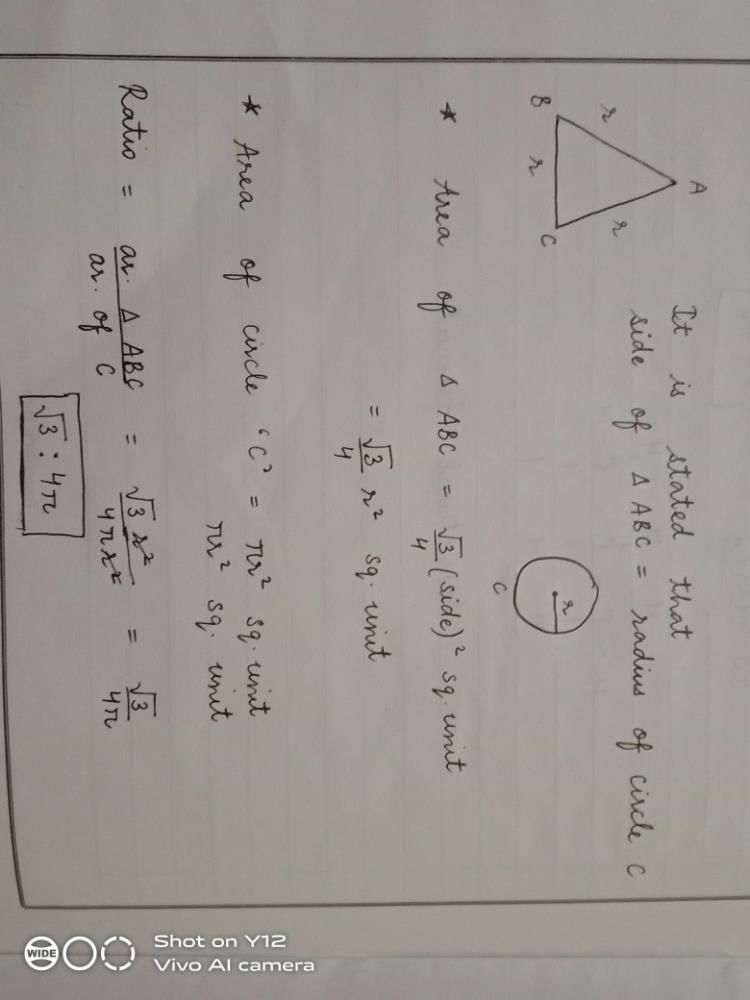 It is stated that
side of Δ ABC = radius of circle C
A
r
r
B
r
C
r
C
* Area of Δ ABC = √3/4 (side)² sq. unit
= √3/4 r² sq. unit
* Area of circle 'C' = πr² sq. unit
πr² sq. unit
Ratio = ar. Δ ABC / ar. of C = √3 r² / 4πr² = √3 / 4π
√3 : 4π
WIDE
Shot on Y12
Vivo AI camera